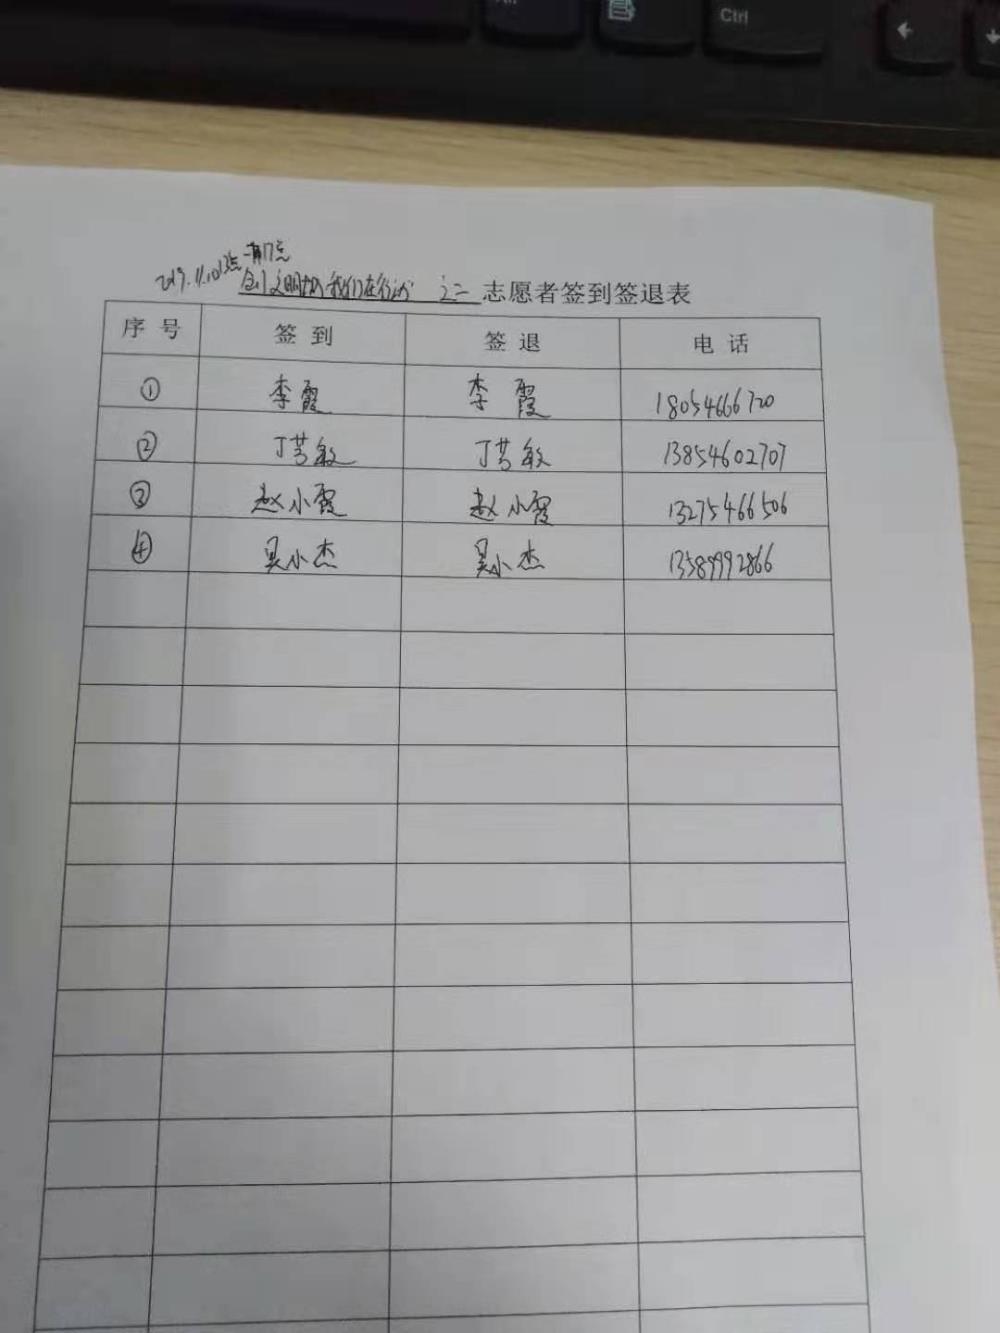 Ctrl
2019.11.10 13点—17点
创文明城 我们在行动 之二 志愿者签到签退表
序号 签到 签退 电话
① 李霞 李霞 18054666720
② 丁芳敏 丁芳敏 13854602707
③ 赵小霞 赵小霞 13275466506
④ 吴小杰 吴小杰 13589992866